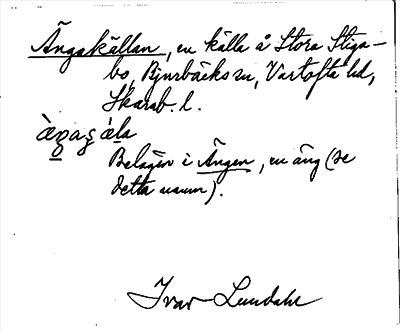 Ängakällan, en källa å Stora Stiga-
bo, Bjurbäcks sn, Vartofta hd,
Skarab. l.
Belägen i Ängen, en äng (se
detta namn).
Ivar Lundahl